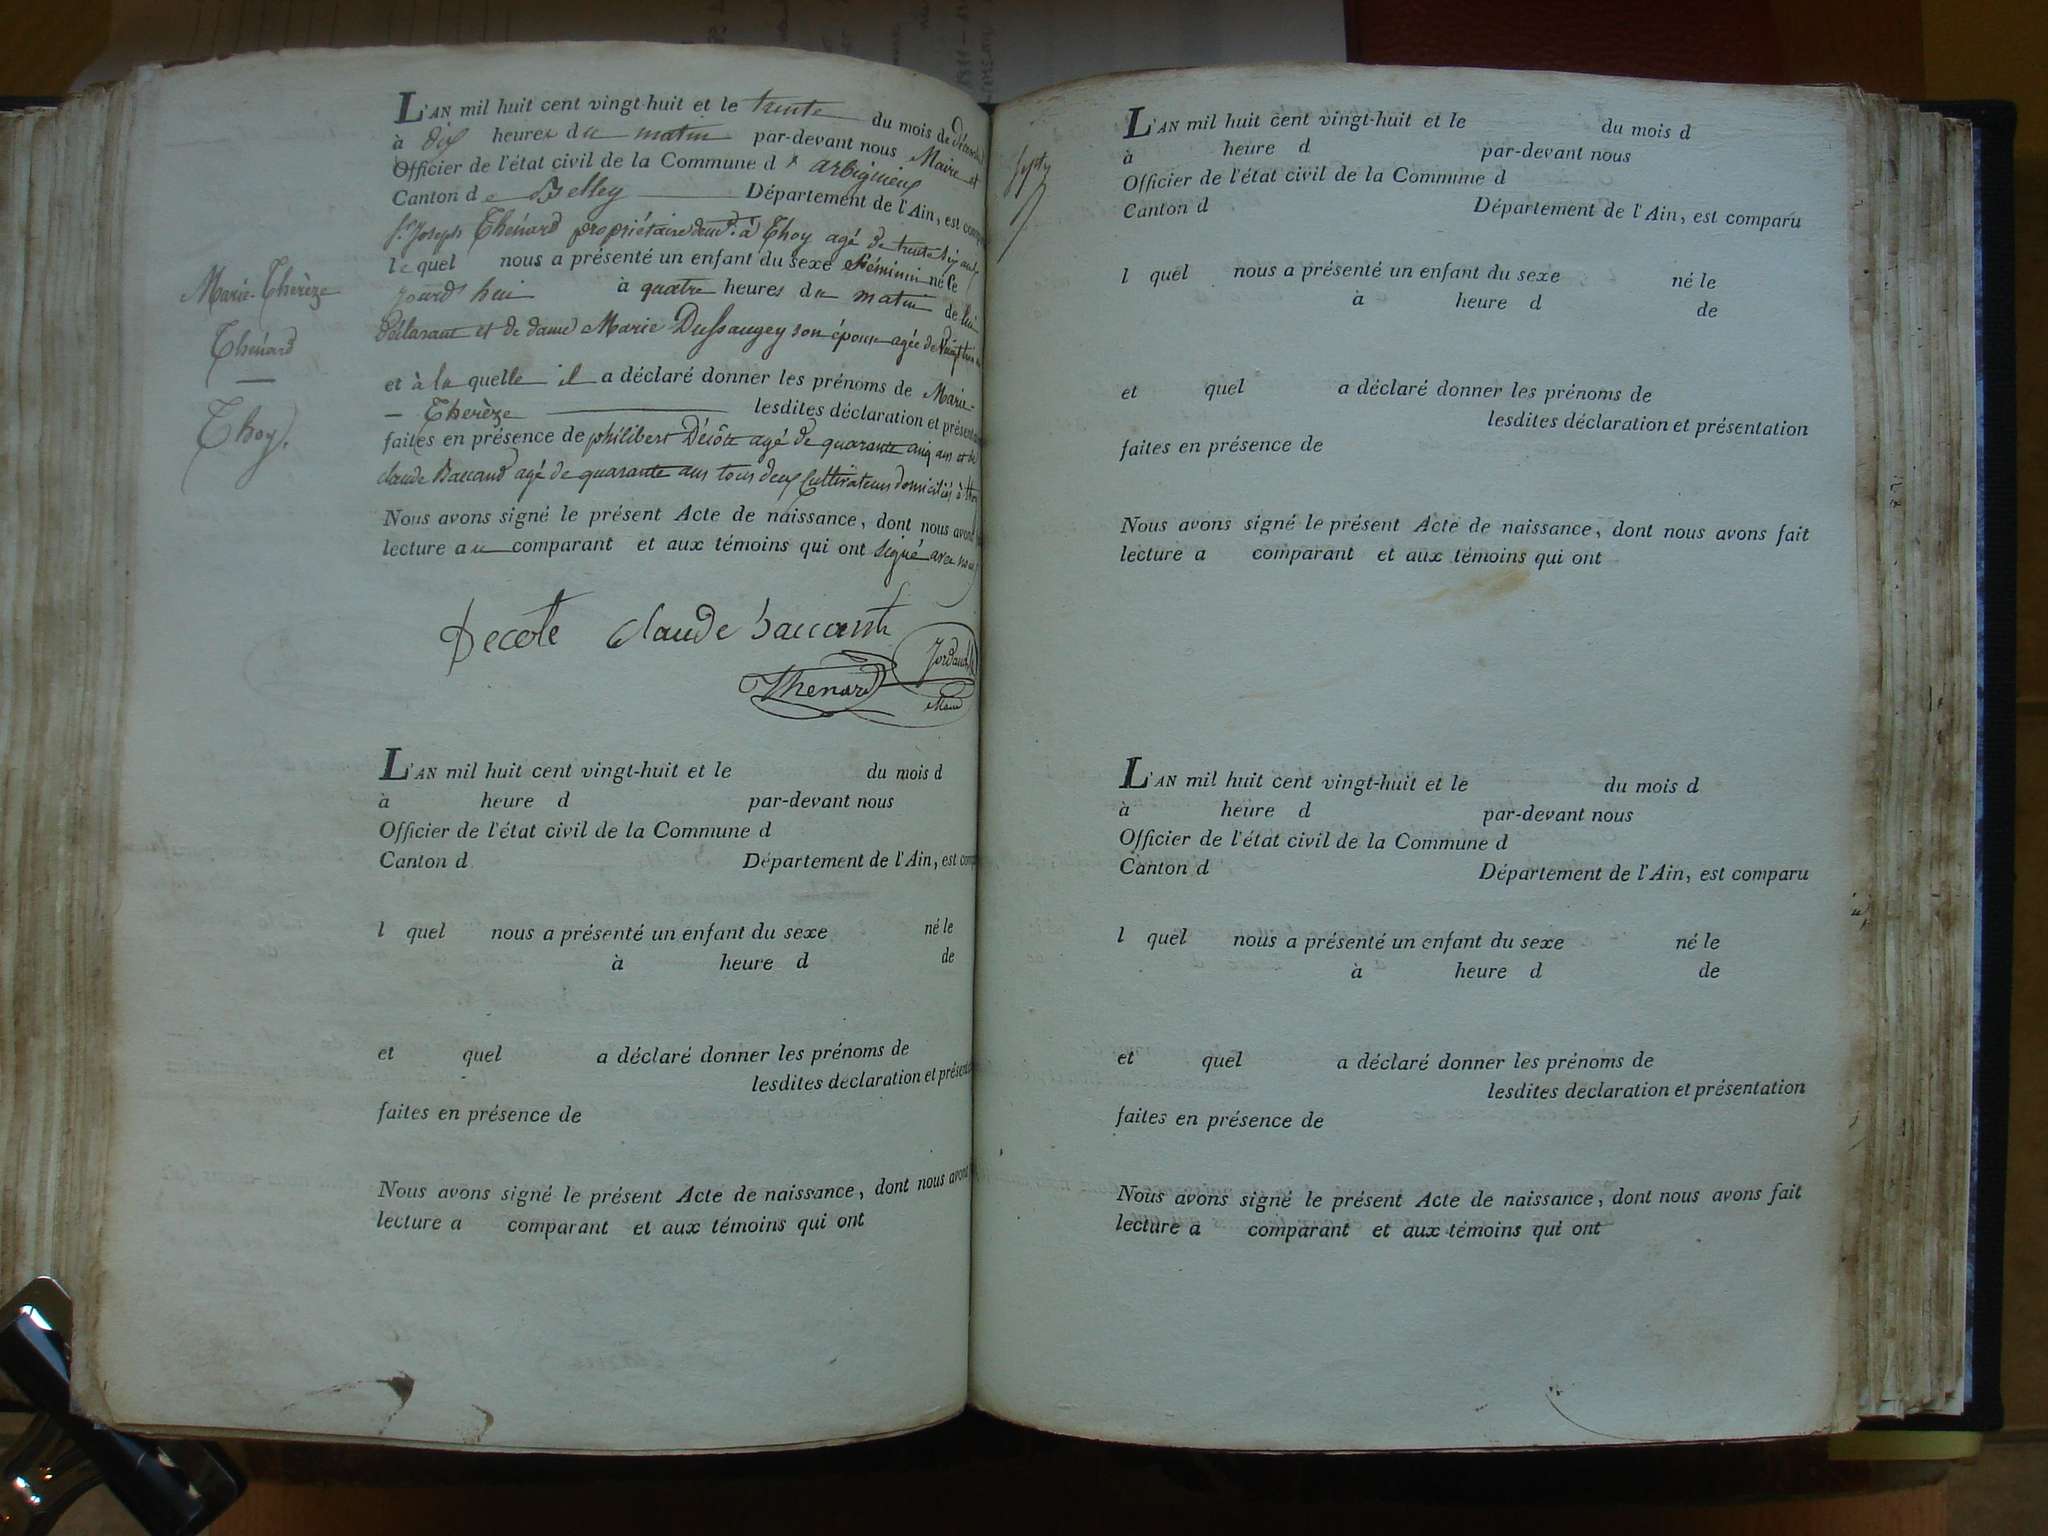 L'AN mil huit cent vingt-huit et le trente du mois de Décembre
à dix heures du matin par-devant nous Maire et
Officier de l'état civil de la Commune d'arbignieu
Canton de Belley Département de l'Ain, est comparu
Sr. Joseph Thénard propriétaire demt. à Thoy agé de trente six ans
le quel nous a présenté un enfant du sexe féminin né le
jourd'hui à quatre heures du matin de lui
déclarant et de dame Marie Dussaugey son épouse agée de
et à la quelle il a déclaré donner les prénoms de Marie-
Therèze lesdites déclaration et présentation
faites en présence de philibert Décôte agé de quarante cinq ans et de
claude Baccand agé de quarante ans tous deux Cultivateurs domiciliés à thoy
Nous avons signé le présent Acte de naissance, dont nous avons
lecture au comparant et aux témoins qui ont signé avec nous
Marie-Therèze
Thénard
Thoy.
Decote claude baccand
Thenard
Maire
L'AN mil huit cent vingt-huit et le du mois d
à heure d par-devant nous
Officier de l'état civil de la Commune d
Canton d Département de l'Ain, est comp
l quel nous a présenté un enfant du sexe né le
à heure d de
et quel a déclaré donner les prénoms de
lesdites déclaration et présent
faites en présence de
Nous avons signé le présent Acte de naissance, dont nous avons
lecture a comparant et aux témoins qui ont
L'AN mil huit cent vingt-huit et le du mois d
à heure d par-devant nous
Officier de l'état civil de la Commune d
Canton d Département de l'Ain, est comparu
l quel nous a présenté un enfant du sexe né le
à heure d de
et quel a déclaré donner les prénoms de
lesdites déclaration et présentation
faites en présence de
Nous avons signé le présent Acte de naissance, dont nous avons fait
lecture a comparant et aux témoins qui ont
L'AN mil huit cent vingt-huit et le du mois d
à heure d par-devant nous
Officier de l'état civil de la Commune d
Canton d Département de l'Ain, est comparu
l quel nous a présenté un enfant du sexe né le
à heure d de
et quel a déclaré donner les prénoms de
lesdites declaration et présentation
faites en présence de
Nous avons signé le présent Acte de naissance, dont nous avons fait
lecture a comparant et aux témoins qui ont